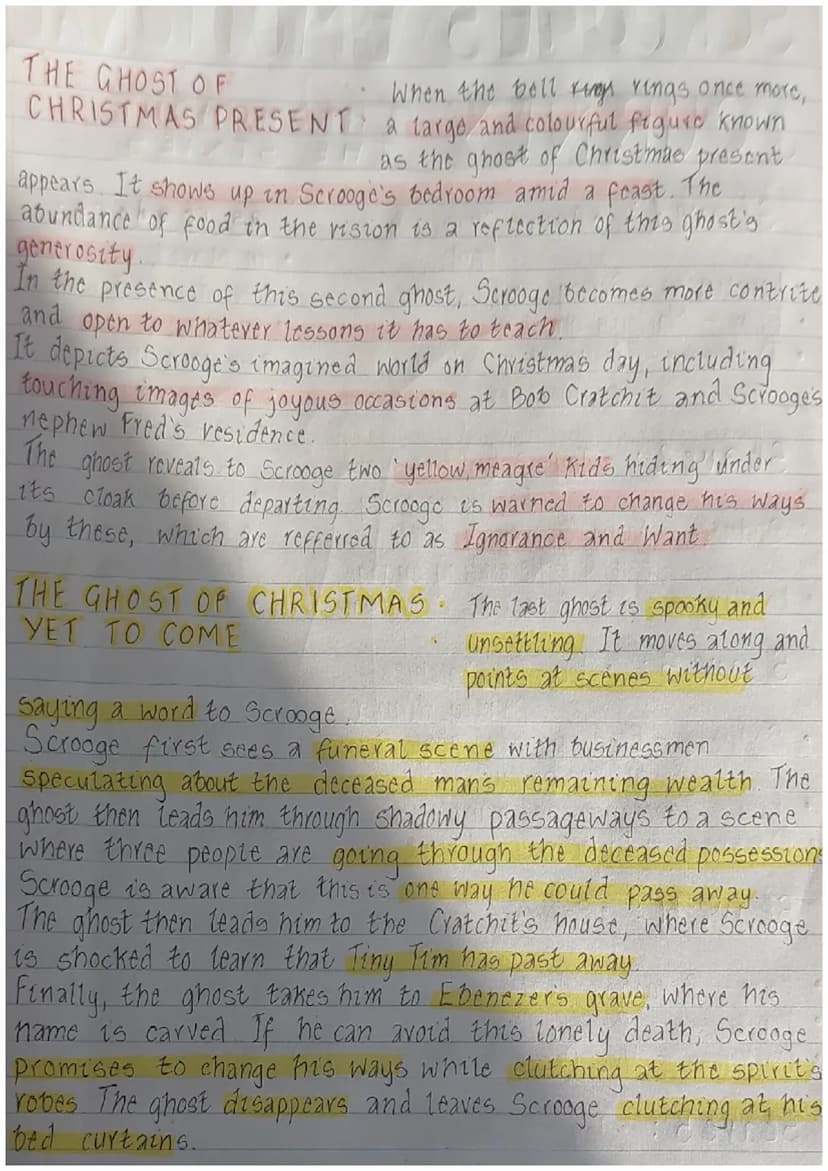 THE GHOST OF
CHRISTMAS PRESENT
When the bell rings once more,
a large and colourful figure known
as the ghost of Christmas present
appears. It shows up in Scrooge's bedroom amid a feast. The
abundance of food in the vision is a reflection of this ghost's
generosity.
In the presence of this second ghost, Scrooge becomes more contrite
and open to whatever lessons it has to teach.
It depicts Scrooge's imagined world on Christmas day, including
touching images of joyous occasions at Bob Cratchit and Scrooge's
nephew Fred's residence.
The ghost reveals to Scrooge two 'yellow, meagre' kids hiding under
its cloak before departing. Scrooge is warned to change his ways
by these, which are refferred to as Ignorance and Want.
THE GHOST OF CHRISTMAS
YET TO COME
The last ghost is spooky and
unsettling. It moves along and
points at scenes without
saying a word to Scrooge.
Scrooge first sees a funeral scene with businessmen
speculating about the deceased man's remaining wealth. The
ghost then leads him through shadowy passageways to a scene
where three people are going through the deceased possessions
Scrooge is aware that this is one way he could pass away.
The ghost then leads him to the Cratchit's house, where Scrooge
is shocked to learn that Tiny Tim has past away.
Finally, the ghost takes him to Ebenezer's grave, where his
name is carved. If he can avoid this lonely death, Scrooge
promises to change his ways while clutching at the spirit's
robes. The ghost disappears and leaves Scrooge clutching at his
bed curtains.